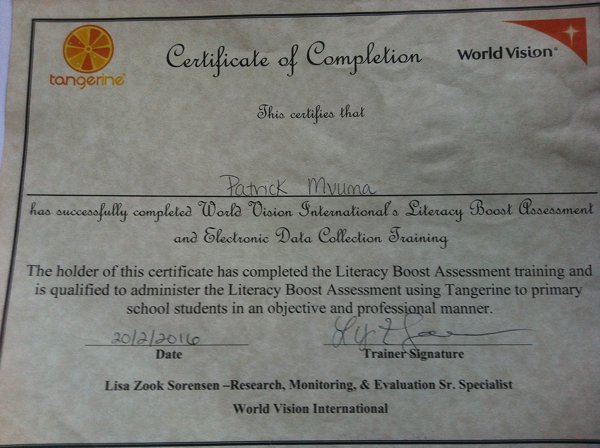 tangerine
Certificate of Completion
World Vision®
This certifies that
Patrick Mvuma
has successfully completed World Vision International's Literacy Boost Assessment
and Electronic Data Collection Training
The holder of this certificate has completed the Literacy Boost Assessment training and
is qualified to administer the Literacy Boost Assessment using Tangerine to primary
school students in an objective and professional manner.
20/2/2016
Date
Trainer Signature
Lisa Zook Sorensen –Research, Monitoring, & Evaluation Sr. Specialist
World Vision International